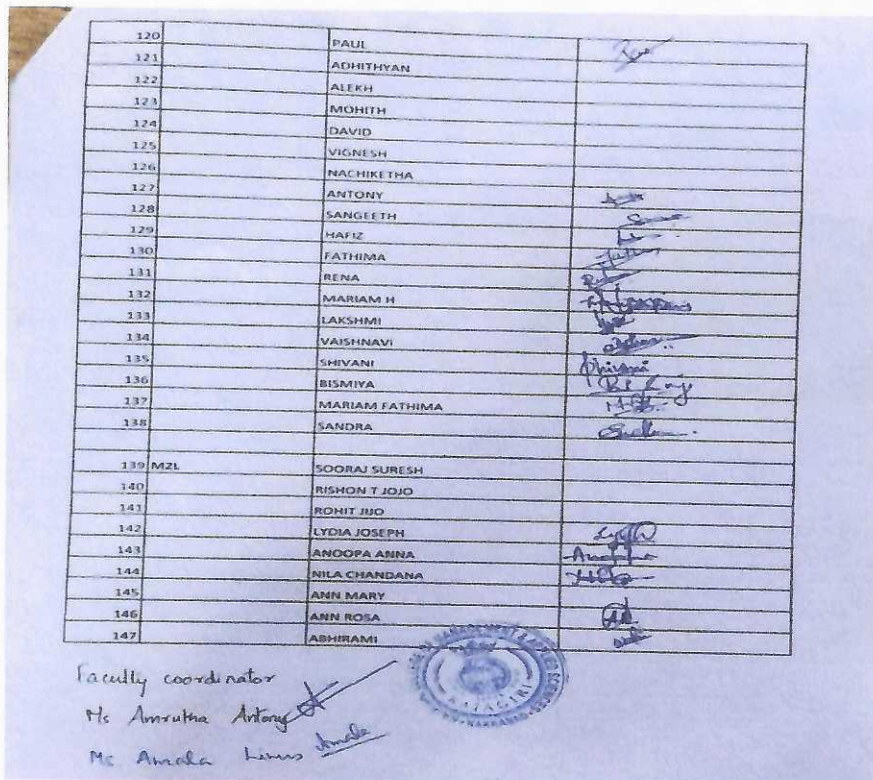 120 PAUL
121 ADHITHYAN
122 ALEKH
123 MOHITH
124 DAVID
125 VIGNESH
126 NACHIKETHA
127 ANTONY
128 SANGEETH
129 HAFIZ
130 FATHIMA
131 RENA
132 MARIAM H
133 LAKSHMI
134 VAISHNAVI
135 SHIVANI Shivani
136 BISMIYA
137 MARIAM FATHIMA
138 SANDRA
139 M2L SOORAJ SURESH
140 RISHON T JOJO
141 ROHIT JIJO
142 LYDIA JOSEPH
143 ANOOPA ANNA
144 NILA CHANDANA
145 ANN MARY
146 ANN ROSA
147 ABHIRAMI
Faculty coordinator
Ms Amrutha Antony
Ms Amala Linus Amala
MANAGEMENT & APPLIED SCIENCES
RAJAGIRI